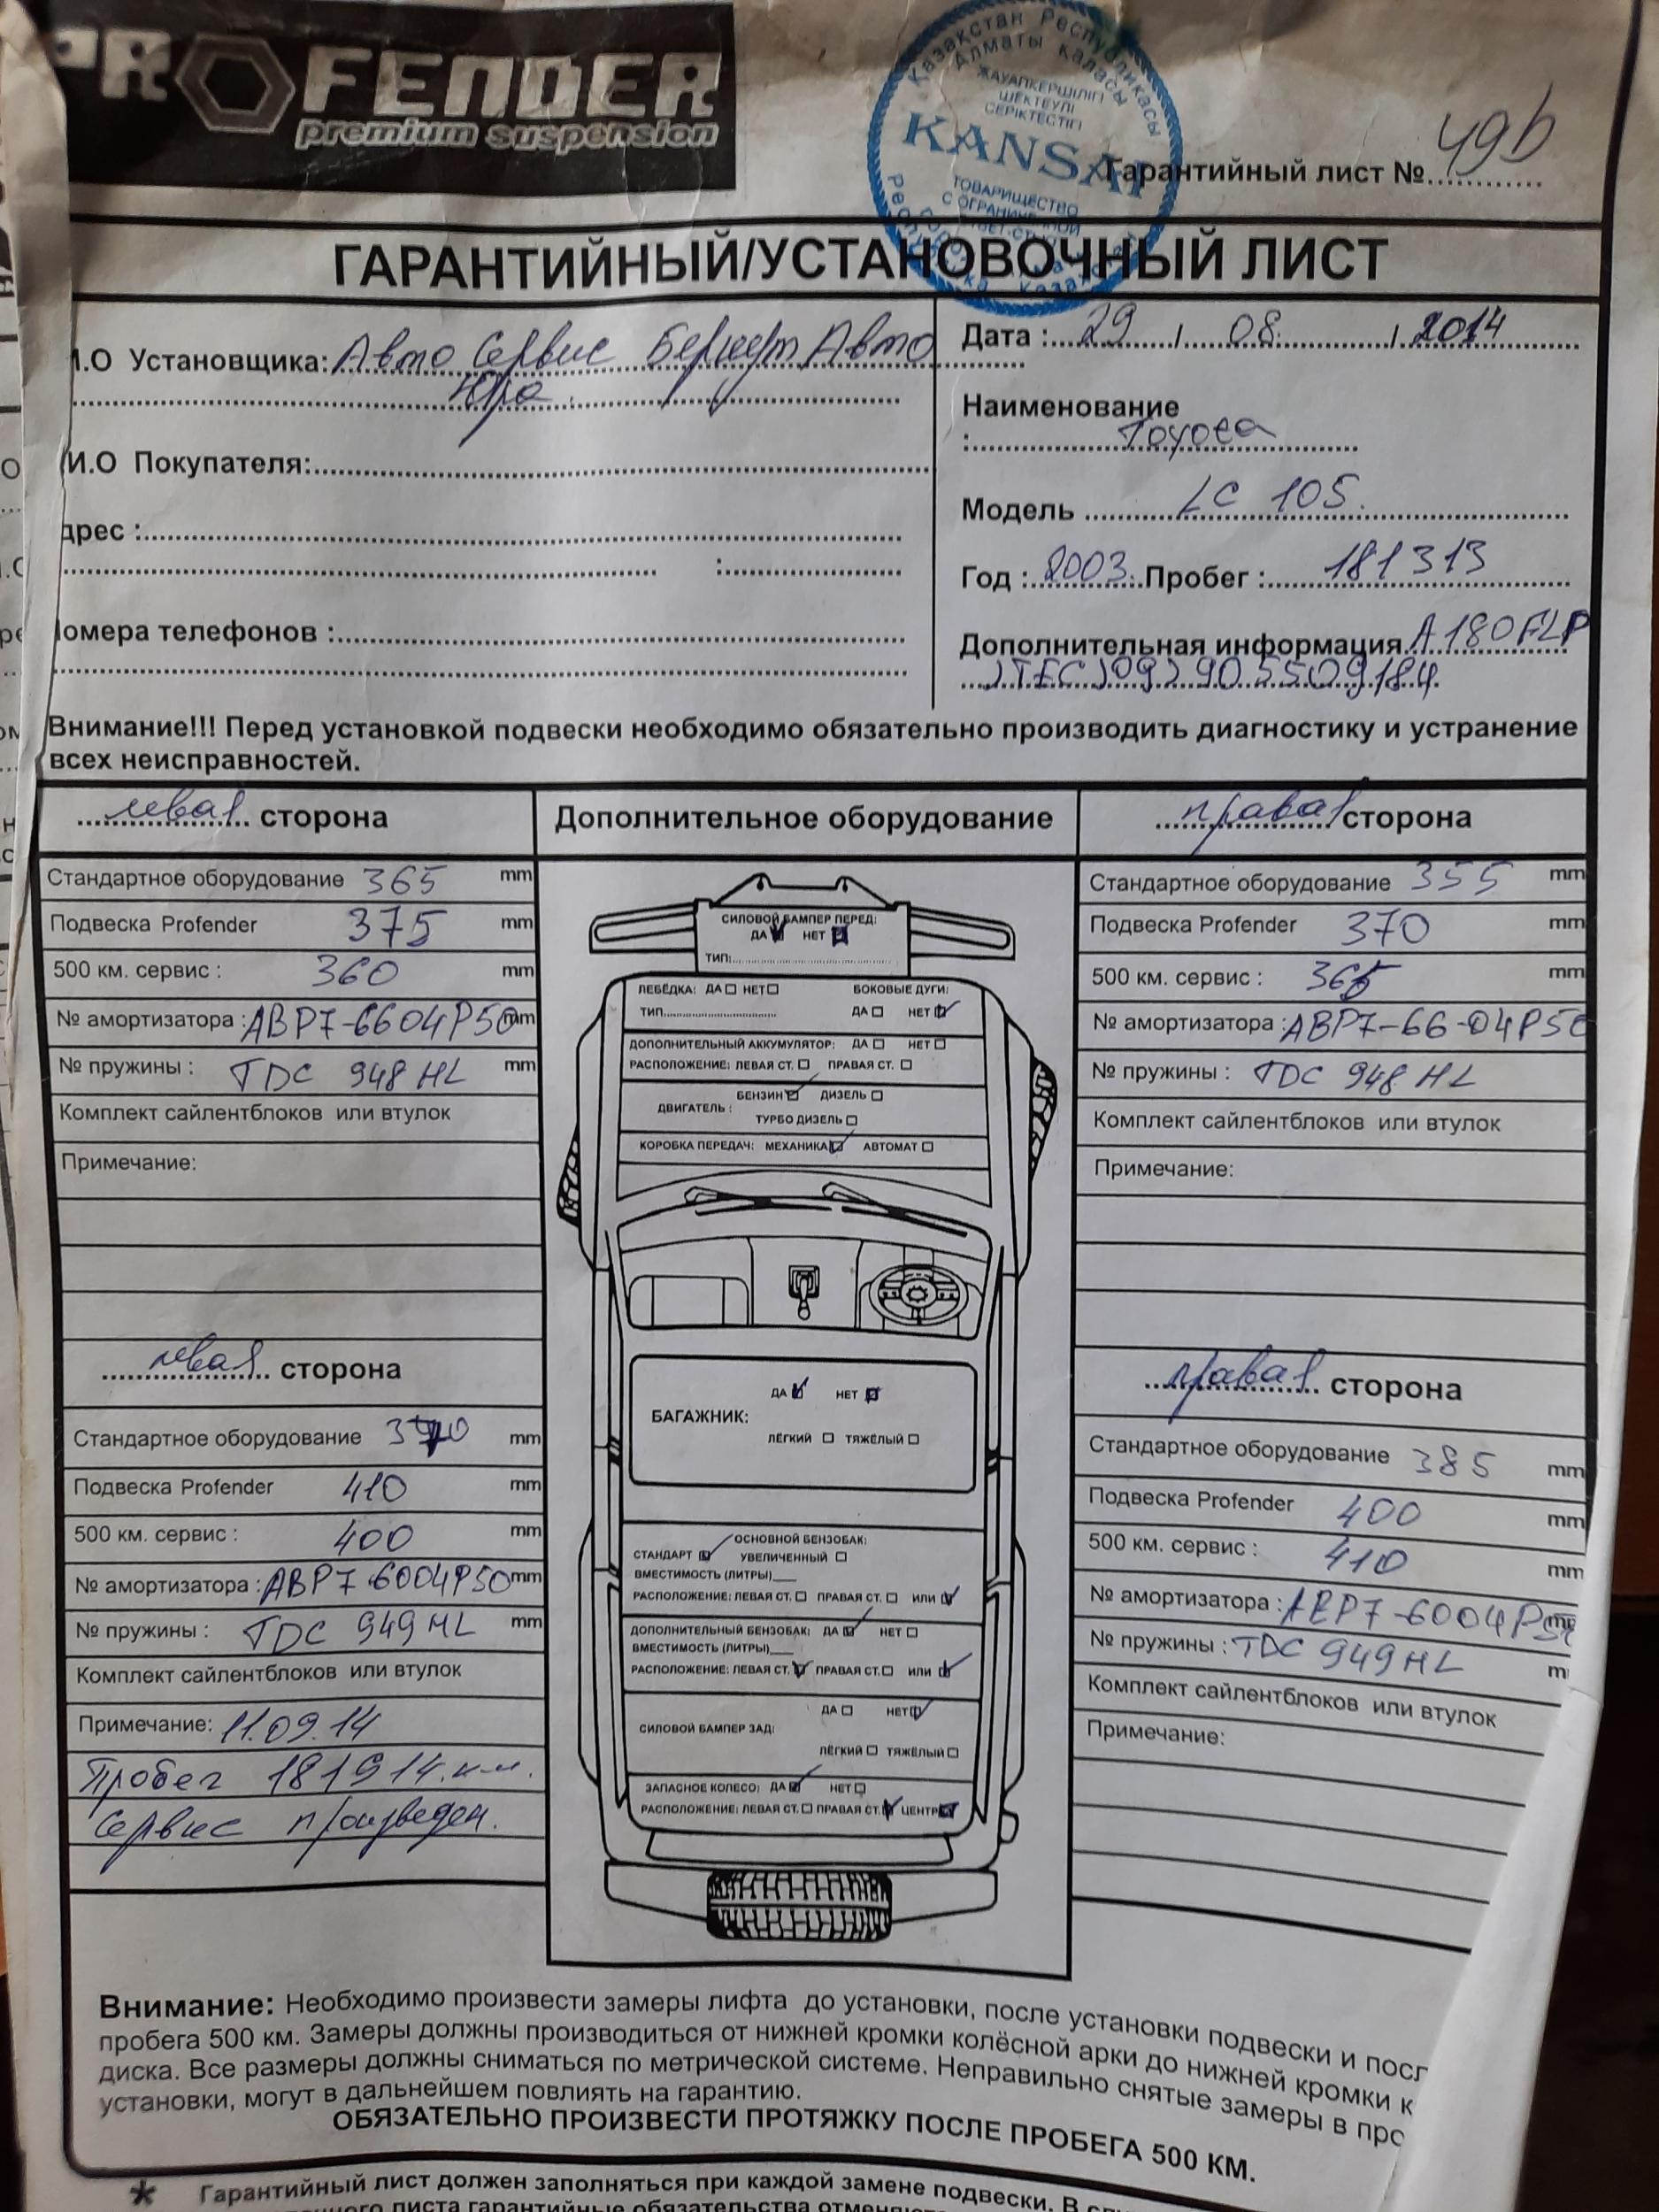 PROFENDER
premium suspension
Қазақстан Республикасы
Алматы қаласы
ЖАУАПКЕРШІЛІГІ
ШЕКТЕУЛІ
СЕРІКТЕСТІГІ
KANSAI
ТОВАРИЩЕСТВО
Гарантийный лист №
ГАРАНТИЙНЫЙ/УСТАНОВОЧНЫЙ ЛИСТ
И.О Установщика: Авто Сервис Беркут Авто
Юра
Дата : 29 / 08 / 2014
Наименование
: Toyota
И.О Покупателя:
Модель LC 105.
дрес :
Год : 2003 Пробег : 181313
омера телефонов :
Дополнительная информация A180FLP
JTECJ09J905509184
Внимание!!! Перед установкой подвески необходимо обязательно производить диагностику и устранение
всех неисправностей.
левая сторона
Стандартное оборудование 365 mm
Подвеска Profender 375 mm
500 км. сервис : 360 mm
№ амортизатора : ABP7-6604P50 mm
№ пружины : TDC 948 HL mm
Комплект сайлентблоков или втулок
Примечание:
Дополнительное оборудование
СИЛОВОЙ БАМПЕР ПЕРЕД:
ДА НЕТ
ТИП:
ЛЕБЁДКА: ДА НЕТ БОКОВЫЕ ДУГИ:
ТИП ДА НЕТ
ДОПОЛНИТЕЛЬНЫЙ АККУМУЛЯТОР: ДА НЕТ
РАСПОЛОЖЕНИЕ: ЛЕВАЯ СТ. ПРАВАЯ СТ.
БЕНЗИН ДИЗЕЛЬ
ДВИГАТЕЛЬ :
ТУРБО ДИЗЕЛЬ
КОРОБКА ПЕРЕДАЧ: МЕХАНИКА АВТОМАТ
правая сторона
Стандартное оборудование 355 mm
Подвеска Profender 370 mm
500 км. сервис : 365 mm
№ амортизатора : ABP7-66-04P50
№ пружины : TDC 948 HL
Комплект сайлентблоков или втулок
Примечание:
левая сторона
Стандартное оборудование mm
Подвеска Profender 410 mm
500 км. сервис : 400 mm
№ амортизатора : ABP7-6004P50 mm
№ пружины : TDC 949 HL mm
Комплект сайлентблоков или втулок
Примечание: 11.09.14
Пробег 181914 км.
Сервис произведен.
ДА НЕТ
БАГАЖНИК:
ЛЁГКИЙ ТЯЖЁЛЫЙ
ОСНОВНОЙ БЕНЗОБАК:
СТАНДАРТ УВЕЛИЧЕННЫЙ
ВМЕСТИМОСТЬ (ЛИТРЫ)___
РАСПОЛОЖЕНИЕ: ЛЕВАЯ СТ. ПРАВАЯ СТ. ИЛИ
ДОПОЛНИТЕЛЬНЫЙ БЕНЗОБАК: ДА НЕТ
ВМЕСТИМОСТЬ (ЛИТРЫ)___
РАСПОЛОЖЕНИЕ: ЛЕВАЯ СТ. ПРАВАЯ СТ. ИЛИ
ДА НЕТ
СИЛОВОЙ БАМПЕР ЗАД:
ЛЁГКИЙ ТЯЖЁЛЫЙ
ЗАПАСНОЕ КОЛЕСО: ДА НЕТ
РАСПОЛОЖЕНИЕ: ЛЕВАЯ СТ. ПРАВАЯ СТ. ЦЕНТР
правая сторона
Стандартное оборудование 385 mm
Подвеска Profender 400 mm
500 км. сервис : 410 mm
№ амортизатора : ABP7-6004P50
№ пружины : TDC 949 HL m
Комплект сайлентблоков или втулок
Примечание:
Внимание: Необходимо произвести замеры лифта до установки, после установки подвески и посл
пробега 500 км. Замеры должны производиться от нижней кромки колёсной арки до нижней кромки к
диска. Все размеры должны сниматься по метрической системе. Неправильно снятые замеры в про
установки, могут в дальнейшем повлиять на гарантию.
ОБЯЗАТЕЛЬНО ПРОИЗВЕСТИ ПРОТЯЖКУ ПОСЛЕ ПРОБЕГА 500 КМ.
* Гарантийный лист должен заполняться при каждой замене подвески. В
листа гарантийные обязательства